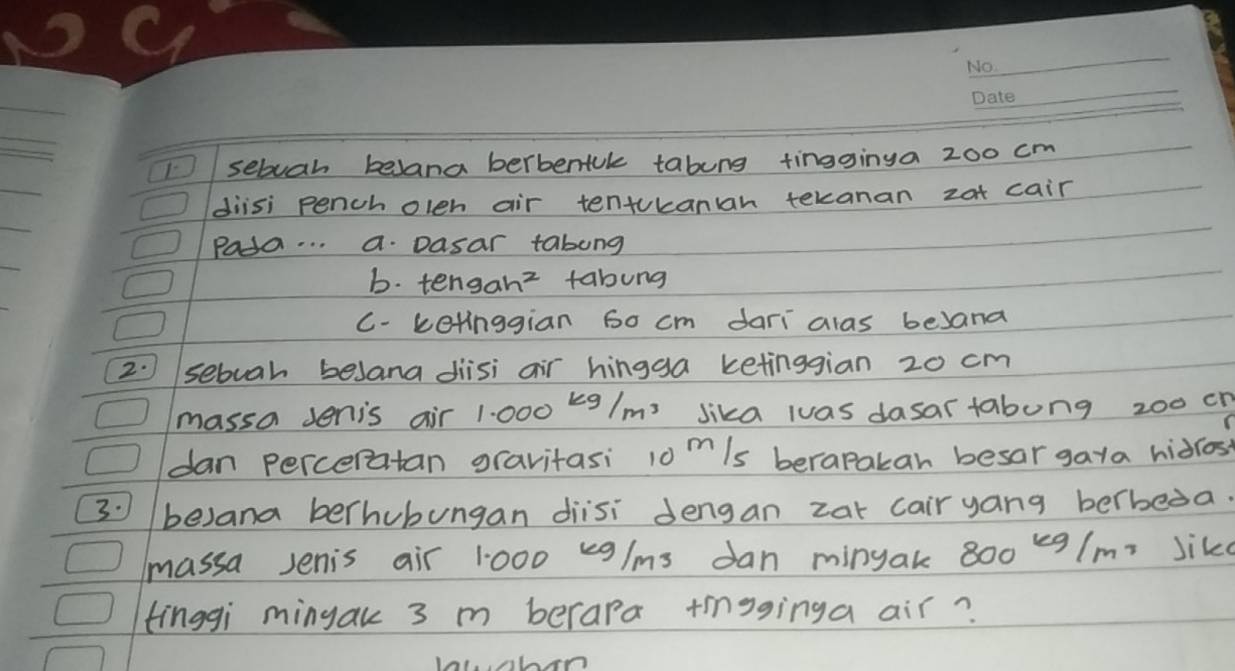 No.
Date
1. sebuah bejana berbentuk tabung tingginya 200 cm
diisi penuh oleh air tentukanlah tekanan zat cair
Pada... a. Dasar tabung
b. tengah² tabung
c. ketinggian 60 cm dari alas bejana
2. sebuah bejana diisi air hingga ketinggian 20 cm
massa jenis air 1.000 kg/m³ Jika luas dasar tabung 200 cm
dan percepatan gravitasi 10 m/s berapakah besar gaya hidrost
3. bejana berhubungan diisi dengan zat cair yang berbeda.
massa jenis air 1.000 kg/m3 dan minyak 800 kg/m³ Jika
tinggi minyak 3 m berapa tingginya air?